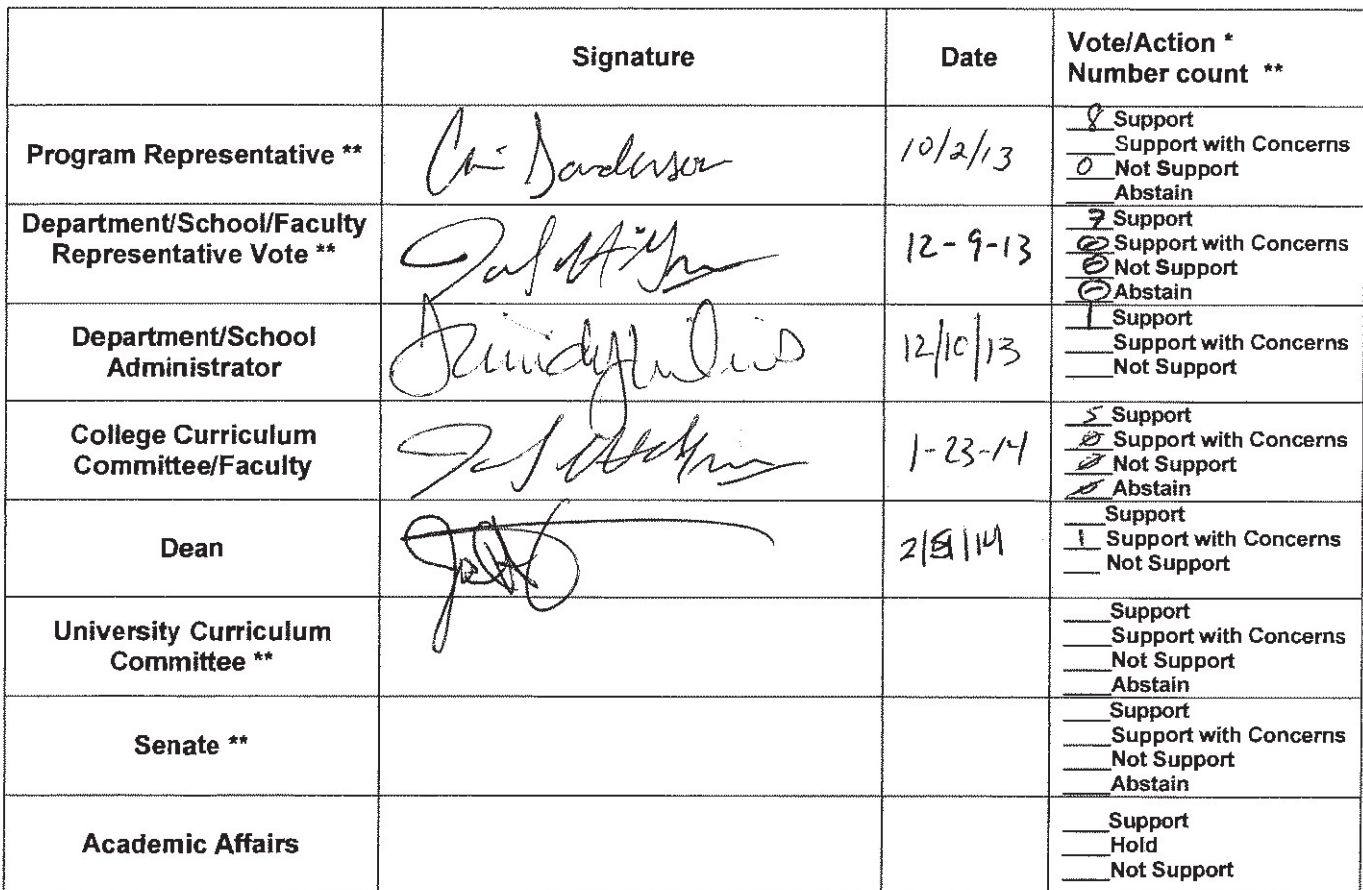 Signature
Date
Vote/Action *
Number count **
Program Representative **
10/2/13
8 Support
Support with Concerns
0 Not Support
Abstain
Department/School/Faculty
Representative Vote **
12-9-13
7 Support
0 Support with Concerns
0 Not Support
0 Abstain
Department/School
Administrator
12/10/13
1 Support
Support with Concerns
Not Support
College Curriculum
Committee/Faculty
1-23-14
5 Support
0 Support with Concerns
0 Not Support
0 Abstain
Dean
Support
1 Support with Concerns
Not Support
University Curriculum
Committee **
Support
Support with Concerns
Not Support
Abstain
Senate **
Support
Support with Concerns
Not Support
Abstain
Academic Affairs
Support
Hold
Not Support